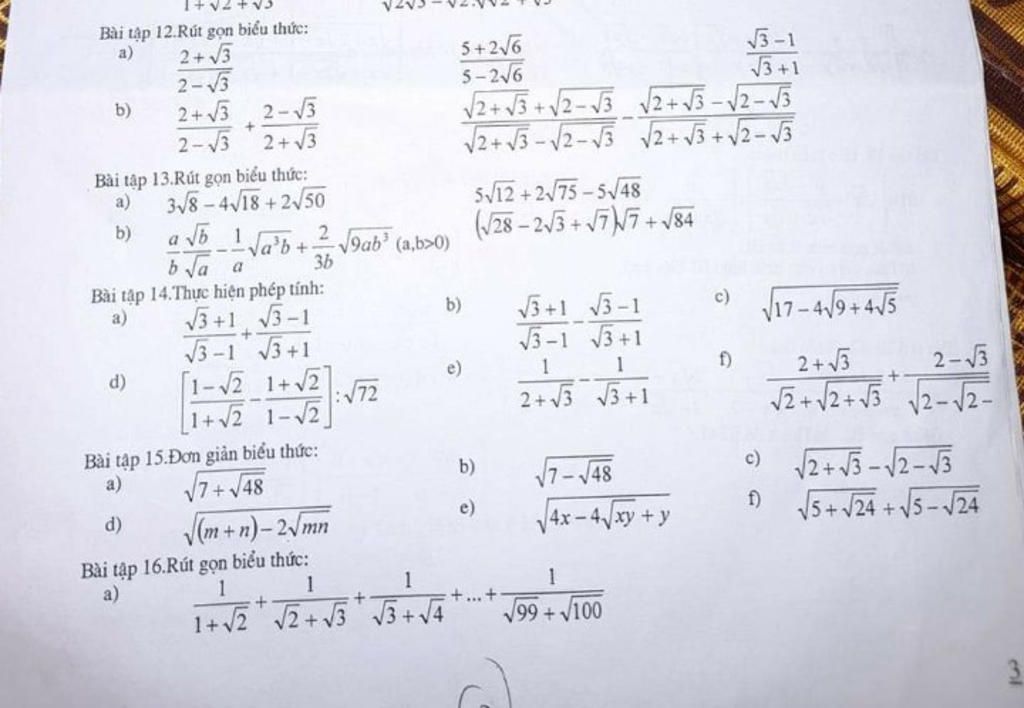 1+√2+√3
Bài tập 12.Rút gọn biểu thức:
a) (2+√3)/(2−√3) (5+2√6)/(5−2√6) (√3−1)/(√3+1)
b) (2+√3)/(2−√3) + (2−√3)/(2+√3) (√(2+√3)+√(2−√3))/(√(2+√3)−√(2−√3)) − (√(2+√3)−√(2−√3))/(√(2+√3)+√(2−√3))
Bài tập 13.Rút gọn biểu thức:
a) 3√8−4√18+2√50 5√12+2√75−5√48
b) (a/b)(√b/√a) − (1/a)√(a³b) + (2/3b)√(9ab³) (a,b>0) (√28−2√3+√7)√7+√84
Bài tập 14.Thực hiện phép tính:
a) (√3+1)/(√3−1) + (√3−1)/(√3+1) b) (√3+1)/(√3−1) − (√3−1)/(√3+1) c) √(17−4√(9+4√5))
d) [(1−√2)/(1+√2) − (1+√2)/(1−√2)]:√72 e) 1/(2+√3) − 1/(√3+1) f) (2+√3)/(√2+√(2+√3)) + (2−√3)/(√2−√2−
Bài tập 15.Đơn giản biểu thức:
a) √(7+√48) b) √(7−√48) c) √(2+√3)−√(2−√3)
d) √((m+n)−2√mn) e) √(4x−4√xy+y) f) √(5+√24)+√(5−√24)
Bài tập 16.Rút gọn biểu thức:
a) 1/(1+√2) + 1/(√2+√3) + 1/(√3+√4) +...+ 1/(√99+√100)
3